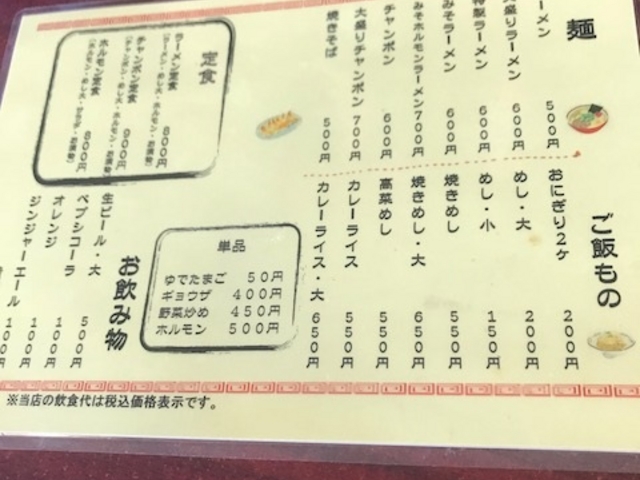 麺
ーメン 500円
大盛りラーメン 600円
特製ラーメン 600円
みそラーメン 600円
みそホルモンラーメン 700円
チャンポン 600円
大盛りチャンポン 700円
焼きそば 500円
定食
ラーメン定食 800円
(ラーメン・めし大・ホルモン・お漬物)
チャンポン定食 900円
ホルモン定食 800円
(ホルモン・めし大・サラダ・お漬物)
ご飯もの
おにぎり2ヶ 200円
めし・大 200円
めし・小 150円
焼きめし 550円
焼きめし・大 650円
高菜めし 550円
カレーライス 550円
カレーライス・大 650円
単品
ゆでたまご 50円
ギョウザ 400円
野菜炒め 450円
ホルモン 500円
お飲み物
生ビール・大 500円
ペプシコーラ 100円
オレンジ 100円
ジンジャーエール 100円
※当店の飲食代は税込価格表示です。